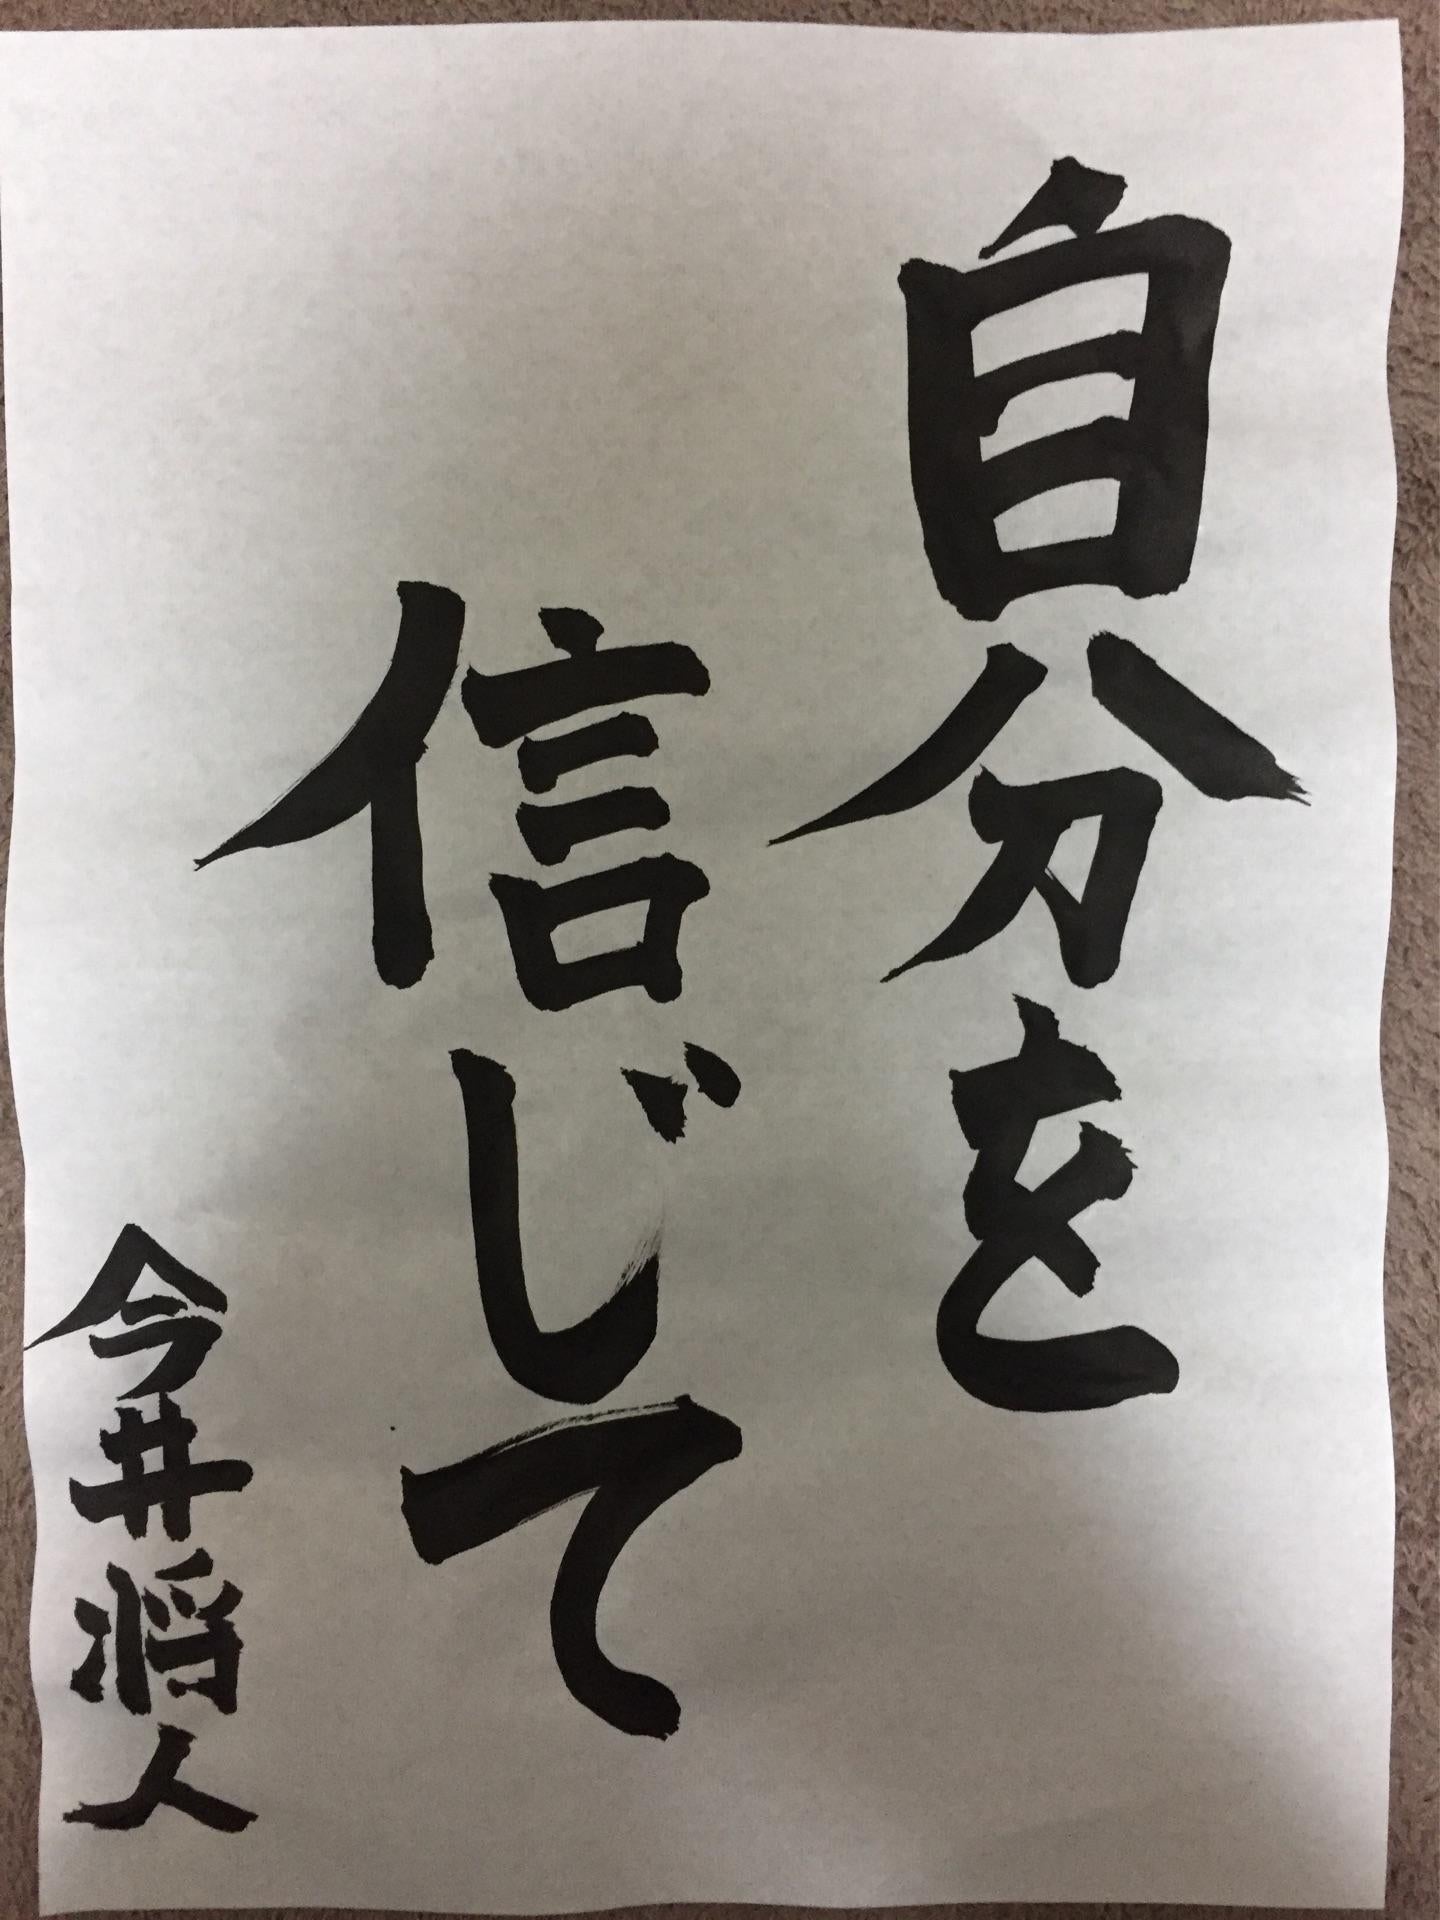 自分を
信じて
今井将人